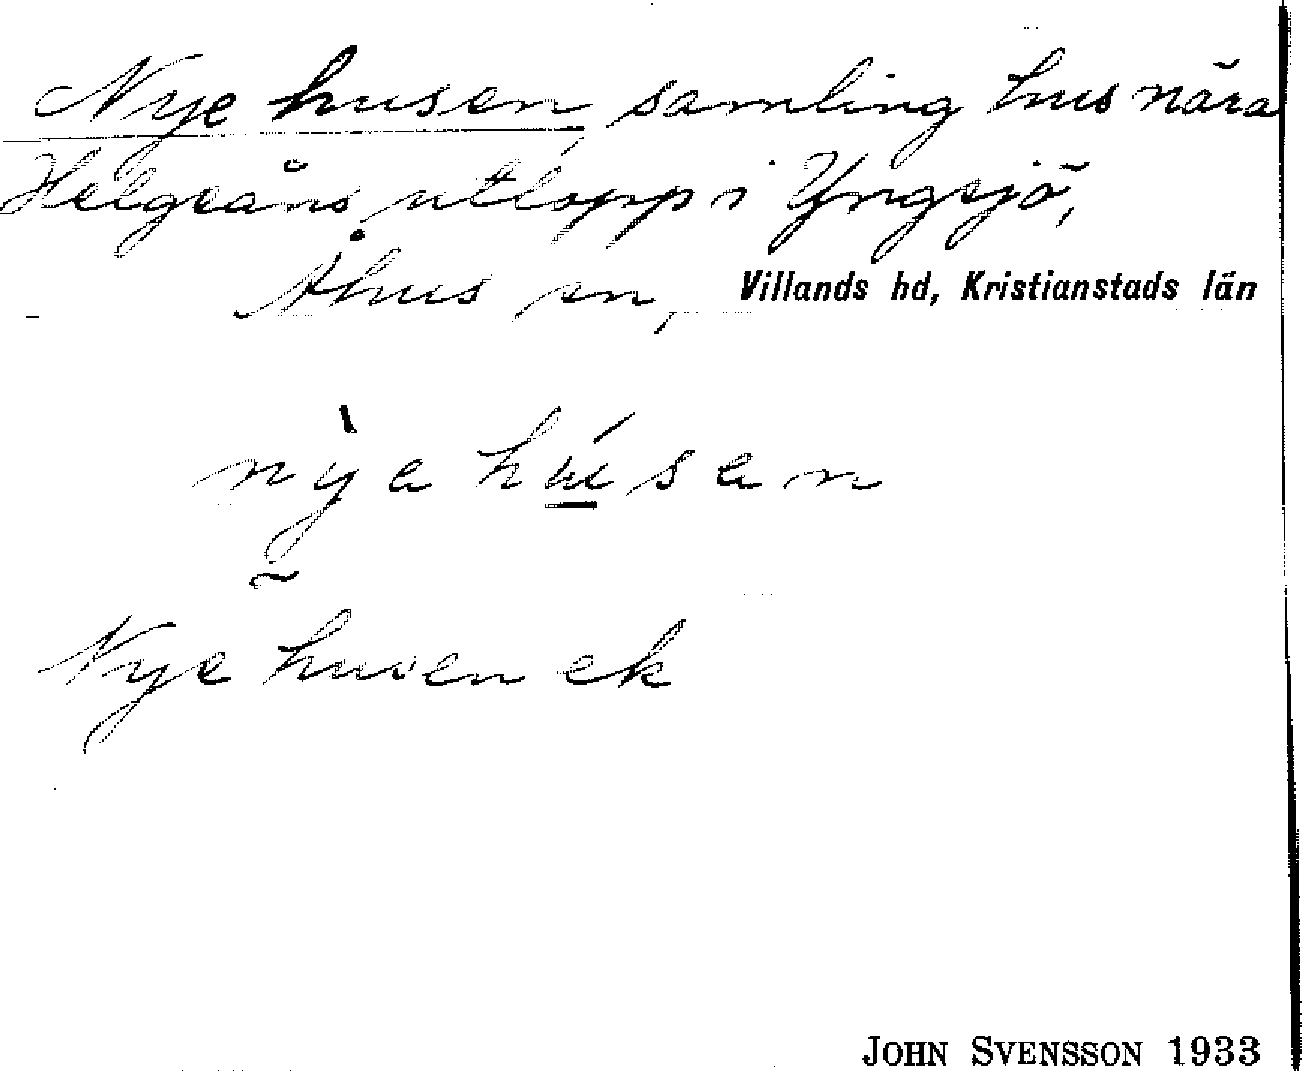 Nye husen, samling hus nära
Helgeåns utlopp i Yngsjö,
Åhus sn, Villands hd, Kristianstads län
nỳa húsan
Nye husen ek
JOHN SVENSSON 1933